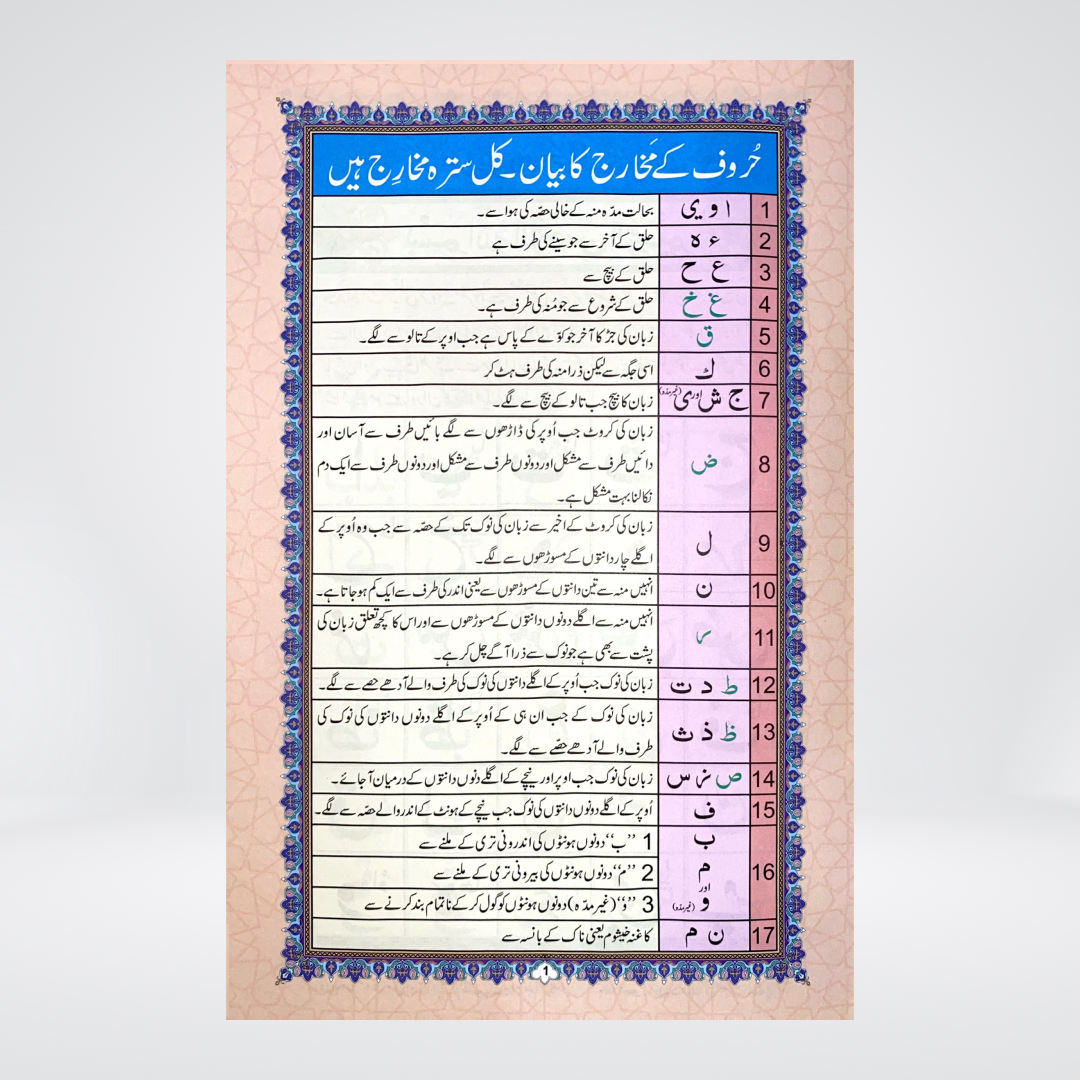 حُروف کے مَخارج کا بیان۔ کل سترہ مخارِج ہیں
1 ا و ی بحالت مدّہ منہ کے خالی حصّہ کی ہوا سے۔
2 ء ہ حلق کے آخر سے جو سینے کی طرف ہے
3 ع ح حلق کے بیچ سے
4 غ خ حلق کے شروع سے جو مُنہ کی طرف ہے۔
5 ق زبان کی جڑ کا آخر جو کوّے کے پاس ہے جب اوپر کے تالو سے لگے۔
6 ك اسی جگہ سے لیکن ذرا منہ کی طرف ہٹ کر
7 ج ش اور ی (غیر مدہ) زبان کا بیچ جب تالو کے بیچ سے لگے۔
8 ض زبان کی کروٹ جب اُوپر کی ڈاڑھوں سے لگے بائیں طرف سے آسان اور
دائیں طرف سے مشکل اور دونوں طرف سے مشکل اور دونوں طرف سے ایک دم
نکالنا بہت مشکل ہے۔
9 ل زبان کی کروٹ کے اخیر سے زبان کی نوک تک کے حصّہ سے جب وہ اُوپر کے
اگلے چار دانتوں کے مسوڑھوں سے لگے۔
10 ن انہیں منہ سے تین دانتوں کے مسوڑھوں سے یعنی اندر کی طرف سے ایک کم ہو جاتا ہے۔
11 ر انہیں منہ سے اگلے دونوں دانتوں کے مسوڑھوں سے اور اس کا کچھ تعلق زبان کی
پشت سے بھی ہے جو نوک سے ذرا آگے چل کر ہے۔
12 ط د ت زبان کی نوک جب اُوپر کے اگلے دانتوں کی نوک کی طرف والے آدھے حصے سے لگے۔
13 ظ ذ ث زبان کی نوک کے جب ان ہی کے اُوپر کے اگلے دونوں دانتوں کی نوک کی
طرف والے آدھے حصّے سے لگے۔
14 ص ز س زبان کی نوک جب اوپر اور نیچے کے اگلے دنوں دانتوں کے درمیان آ جائے۔
15 ف اُوپر کے اگلے دونوں دانتوں کی نوک جب نیچے کے ہونٹ کے اندر والے حصّہ سے لگے۔
16 ب 1 ’’ب‘‘ دونوں ہونٹوں کی اندرونی تری کے ملنے سے
م 2 ’’م‘‘ دونوں ہونٹوں کی بیرونی تری کے ملنے سے
اور
و (غیر مدہ) 3 ’’وْ‘‘ (غیر مدّہ) دونوں ہونٹوں کو گول کر کے ناتمام بند کرنے سے
17 ن م کا غنہ خیشوم یعنی ناک کے بانسہ سے
1